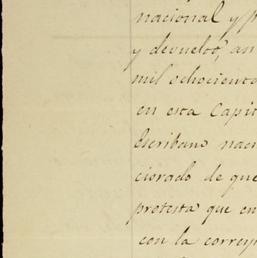 nacional y p
y devuelto, an
mil ochociento
en esta Capit
Escribano naci
ciorado de que
protesta que en
con la corresp